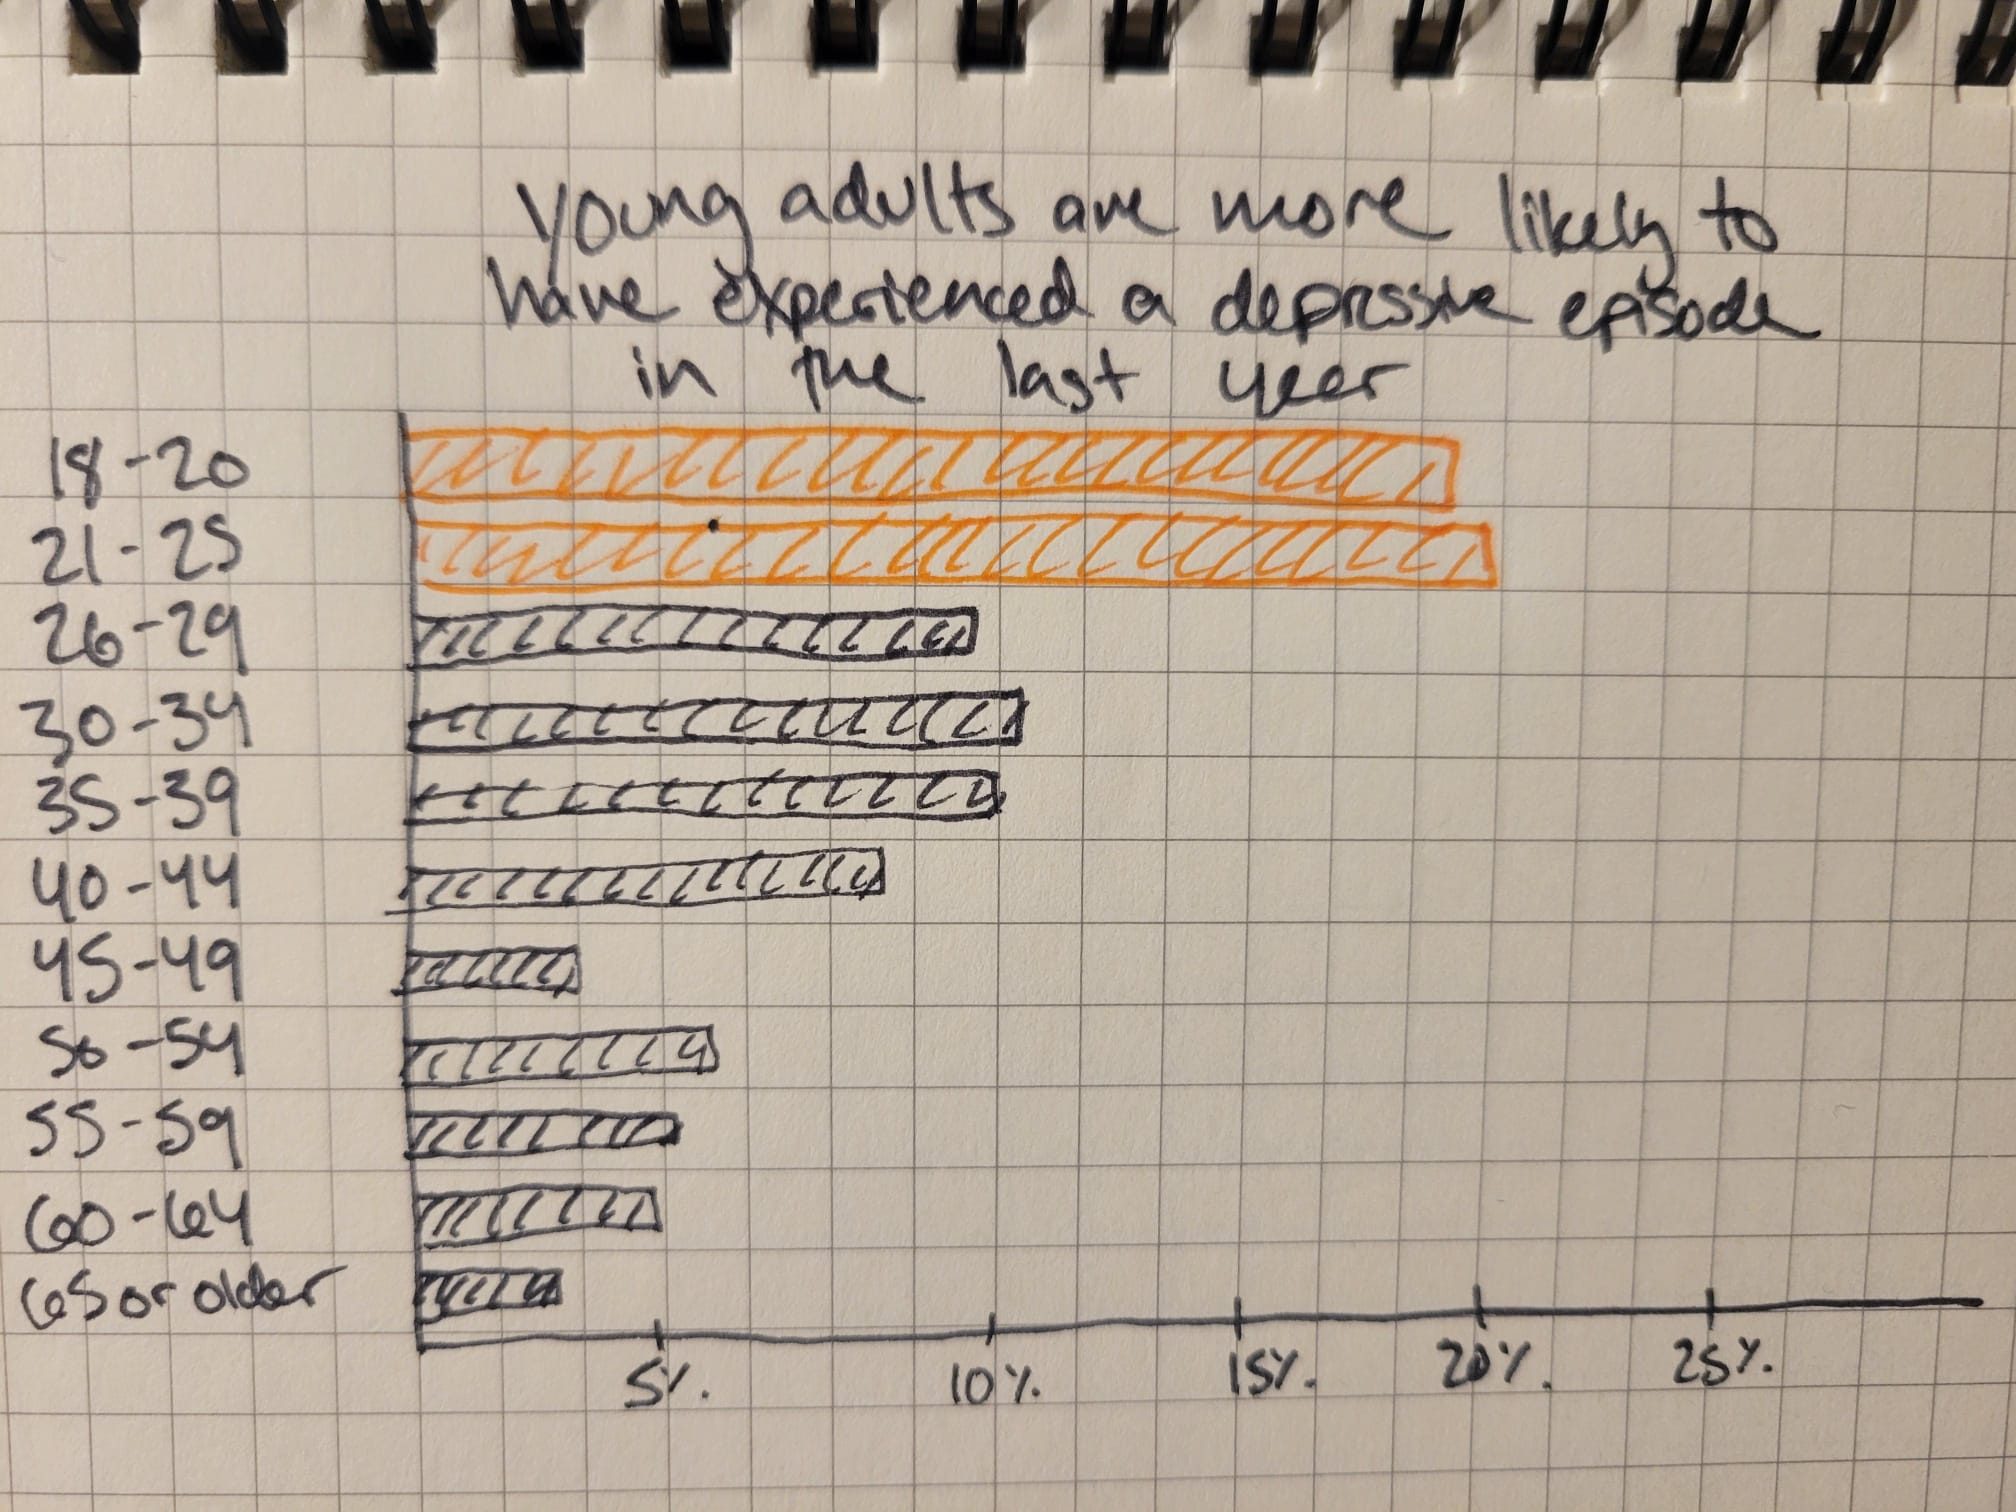 young adults are more likely to
have experienced a depressive episode
in the last year
18-20
21-25
26-29
30-34
35-39
40-44
45-49
50-54
55-59
60-64
65 or older
5%.
10%.
15%.
20%.
25%.